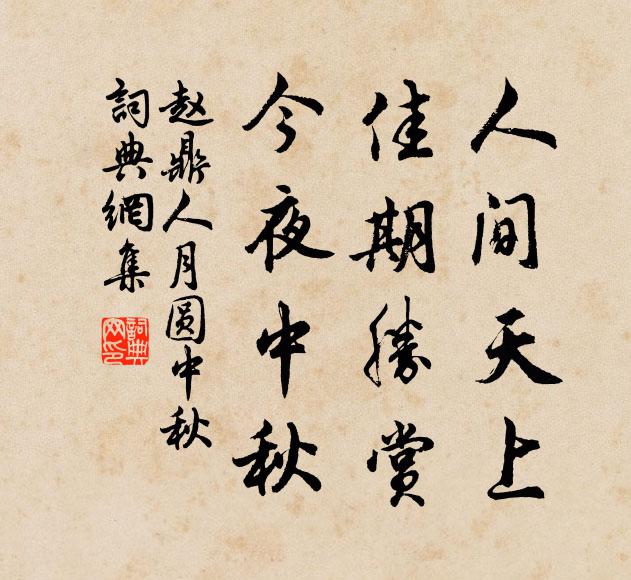 人间天上
佳期勝賞
今夜中秋
赵鼎人月圆中秋
詞典網集
詞典
网印